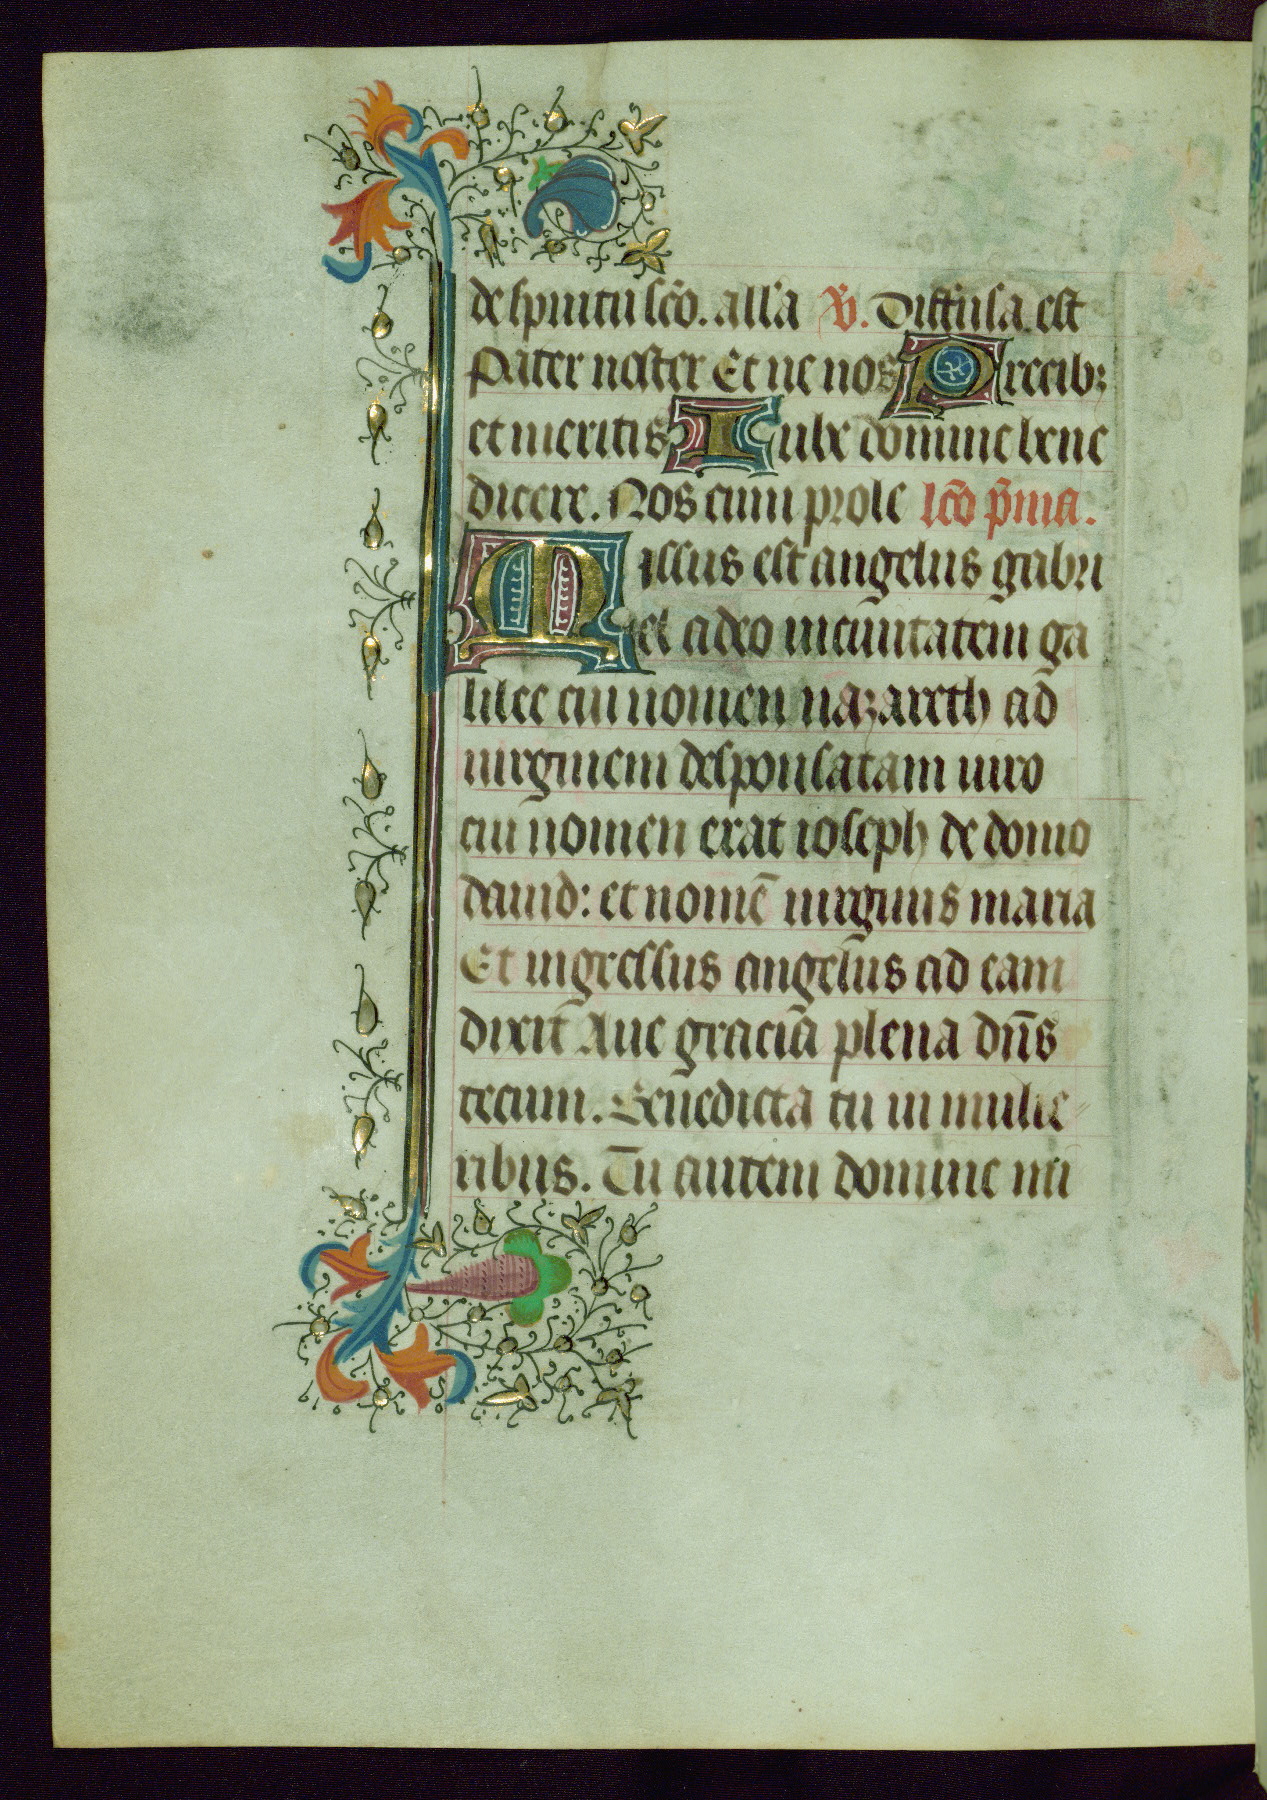 de spiritu sco᷃. alla V. Diffusa est
Pater noster Et ne nos Precib;
et meritis Iube domine bene
dicere. Nos cum prole lc̄o p̄ma.
Missus est angelus gabri
el a deo in ciuitatem ga
lilee cui nomen nazareth ad
uirginem desponsatam uiro
cui nomen erat ioseph de domo
dauid: et nomē uirginis maria
Et ingressus angelus ad eam
dixit Aue gracia plena dn̄s
tecum. Benedicta tu in mulie
ribus. Tu autem domine mi